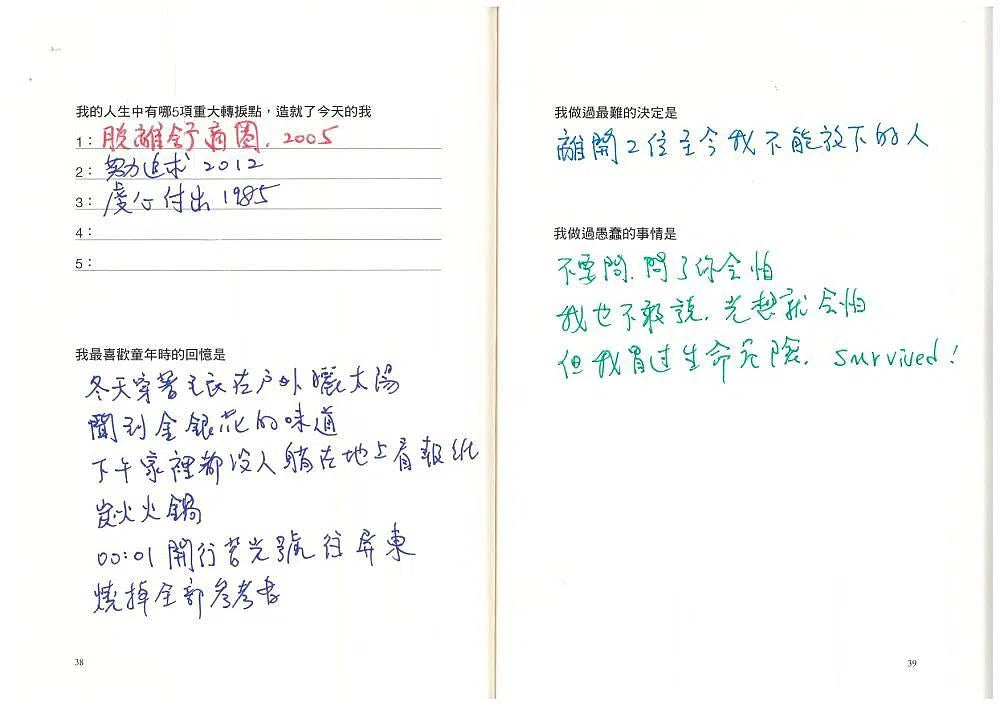 我的人生中有哪5項重大轉捩點，造就了今天的我
1：脫離舒適圈. 2005
2：努力追求 2012
3：虔心付出 1985
4：
5：
我最喜歡童年時的回憶是
冬天穿著毛衣在戶外曬太陽
聞到金銀花的味道
下午家裡都沒人躺在地上看報紙
炭火火鍋
00:01 開行莒光號往屏東
燒掉全部參考書
38
我做過最難的決定是
離開2位至今我不能放下的人
我做過愚蠢的事情是
不要問. 問了你会怕
我也不敢說. 光想就会怕
但我冒过生命危險. survived!
39